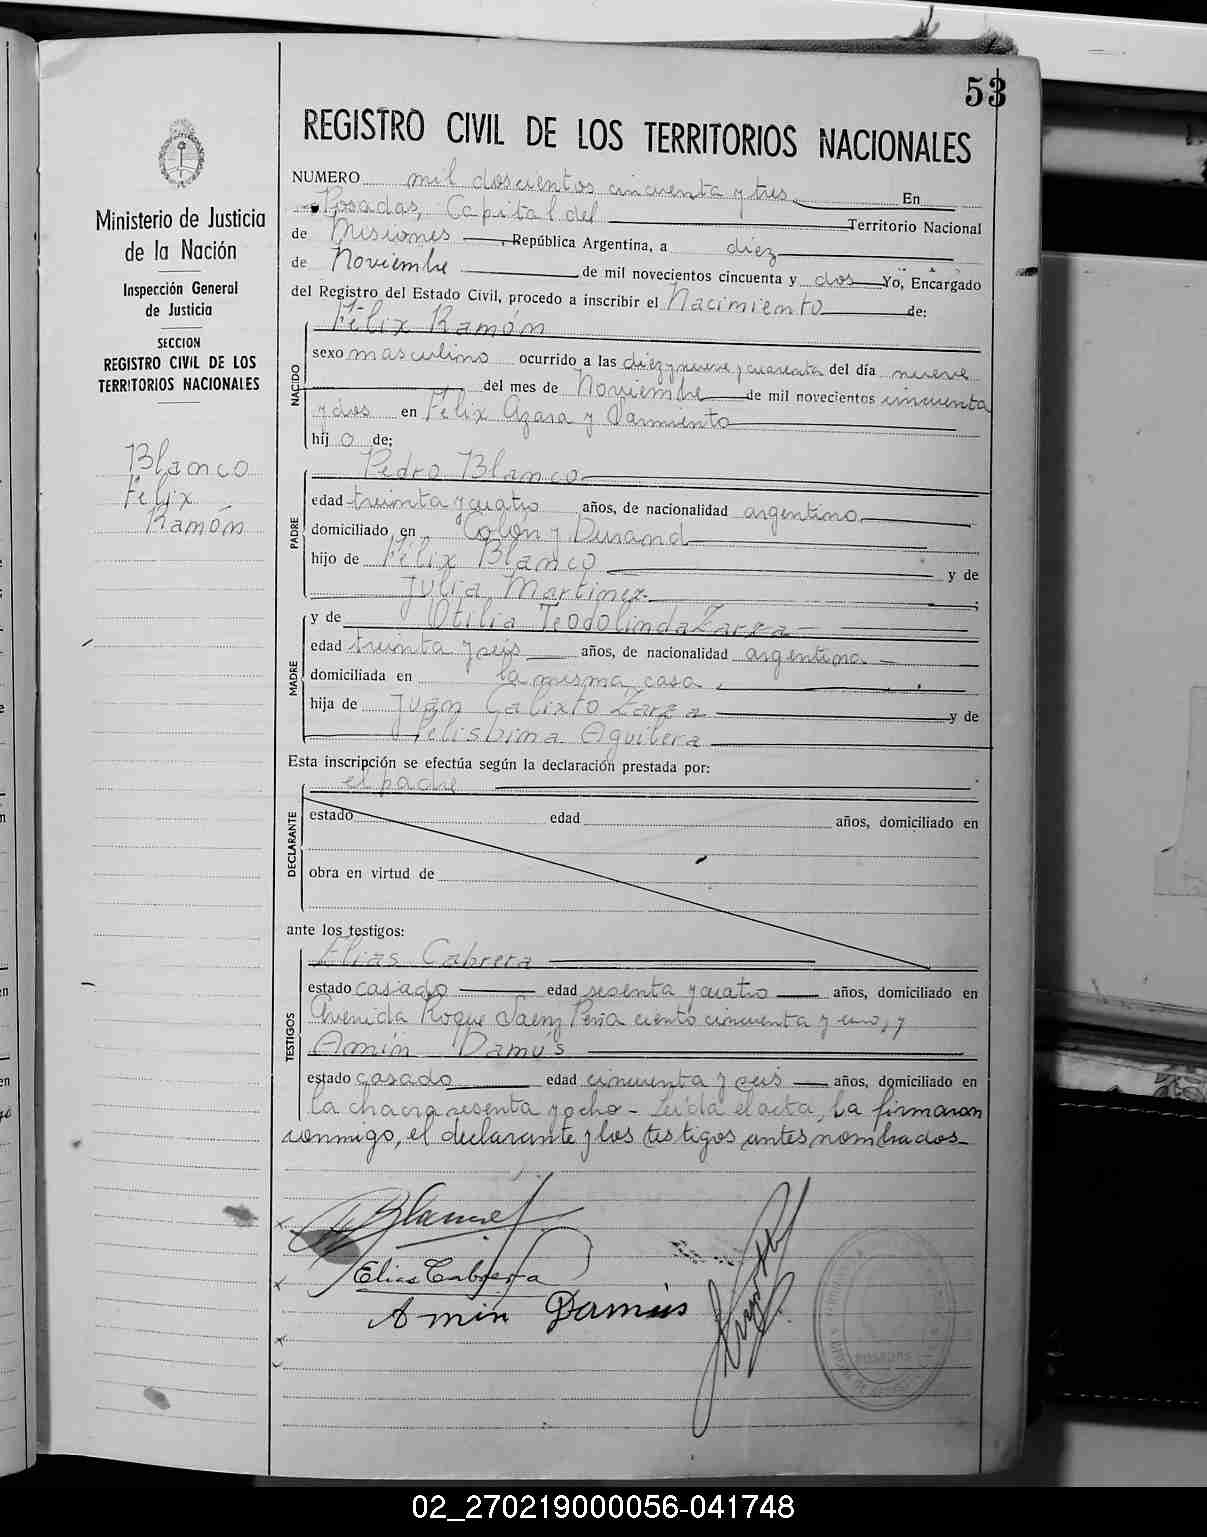 53
REGISTRO CIVIL DE LOS TERRITORIOS NACIONALES
Ministerio de Justicia
de la Nación
Inspección General
de Justicia
SECCION
REGISTRO CIVIL DE LOS
TERRITORIOS NACIONALES
Blanco
Felix
Ramón
NUMERO mil doscientos cincuenta y tres En
Posadas, Capital del Territorio Nacional
de Misiones, República Argentina, a diez
de Noviembre de mil novecientos cincuenta y dos Yo, Encargado
del Registro del Estado Civil, procedo a inscribir el Nacimiento de:
NACIDO
Félix Ramón
sexo masculino ocurrido a las diez y nueve y cuarenta del día nueve
del mes de Noviembre de mil novecientos cincuenta
y dos en Félix Azara y Sarmiento
hij o de:
PADRE
Pedro Blanco
edad treinta y cuatro años, de nacionalidad argentino
domiciliado en Colón y Durand
hijo de Félix Blanco y de
Julia Martinez
MADRE
y de Otilia Teodolinda Zarza
edad treinta y seis años, de nacionalidad argentina
domiciliada en la misma casa
hija de Juan Calixto Zarza y de
Aguilera
Esta inscripción se efectúa según la declaración prestada por:
el padre
DECLARANTE
estado edad años, domiciliado en
obra en virtud de
ante los testigos:
TESTIGOS
Elias Cabrera
estado casado edad sesenta y cuatro años, domiciliado en
Avenida Roque Saenz Peña ciento cincuenta y uno, y
Amin Damús
estado casado edad cincuenta y seis años, domiciliado en
la chacra sesenta y ocho - Leída el acta, la firmaron
conmigo, el declarante y los testigos antes nombrados
Blanco
Elias Cabrera
Amin Damús
POSADAS
02_270219000056-041748